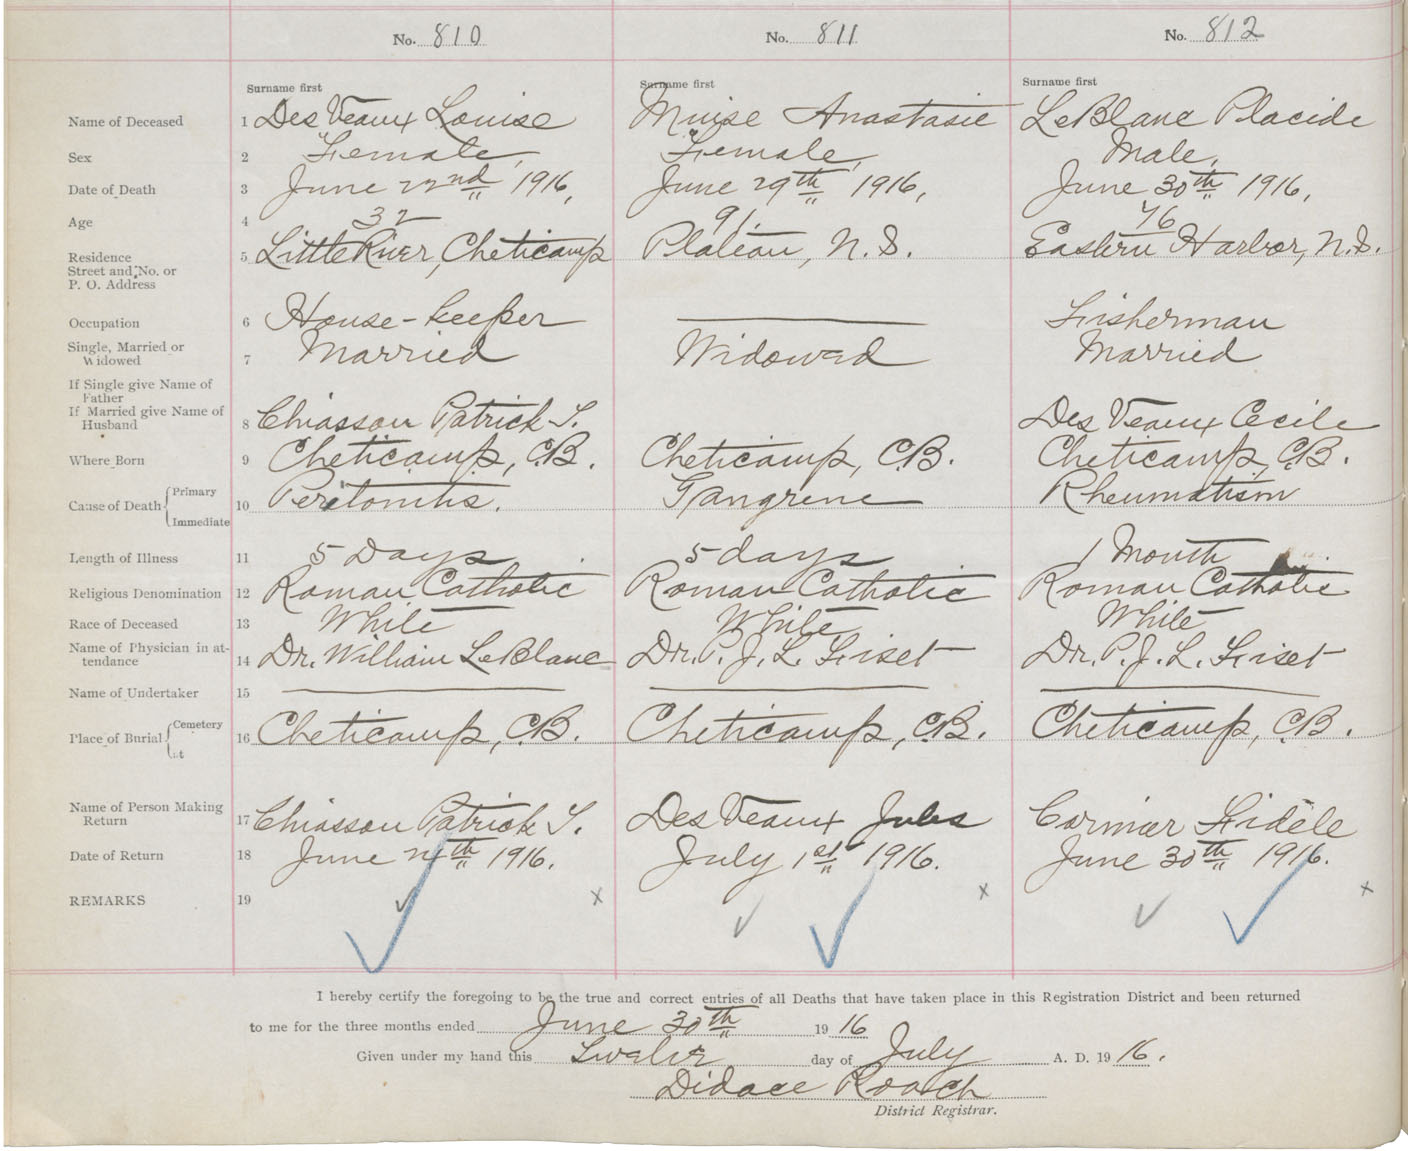 No. 810 No. 811 No. 812
Surname first Surname first Surname first
Name of Deceased 1 DesVeaux Louise Muise Anastasie LeBlanc Placide
Sex 2 Female, Female, Male,
Date of Death 3 June 22nd 1916, June 29th 1916, June 30th 1916,
Age 4 32 91. 76
Residence
Street and No. or
P. O. Address 5 Little River, Cheticamp Plateau, N.S. Eastern Harbor, N.S.
Occupation 6 House-keeper Fisherman
Single, Married or
Widowed 7 Married Widowed Married
If Single give Name of
Father
If Married give Name of
Husband 8 Chiasson Patrick S. DesVeaux Cecile
Where Born 9 Cheticamp, C.B. Cheticamp, C.B. Cheticamp, C.B.
Cause of Death { Primary
Immediate 10 Peritonitis. Gangrene Rheumatism
Length of Illness 11 5 Days 5 days 1 Month
Religious Denomination 12 Roman Catholic Roman Catholic Roman Catholic
Race of Deceased 13 White White White
Name of Physician in at-
tendance 14 Dr. William LeBlanc Dr. P. J. L. Fiset Dr. P. J. L. Fiset
Name of Undertaker 15
Place of Burial { Cemetery
at 16 Cheticamp, C.B. Cheticamp, C.B. Cheticamp, C.B.
Name of Person Making
Return 17 Chiasson Patrick S. DesVeaux Jules Cormier Fidèle
Date of Return 18 June 24th 1916. July 1st 1916. June 30th 1916.
REMARKS 19 x x x
I hereby certify the foregoing to be the true and correct entries of all Deaths that have taken place in this Registration District and been returned
to me for the three months ended June 30th 1916
Given under my hand this day of July A. D. 1916.
Didace Roach
District Registrar.